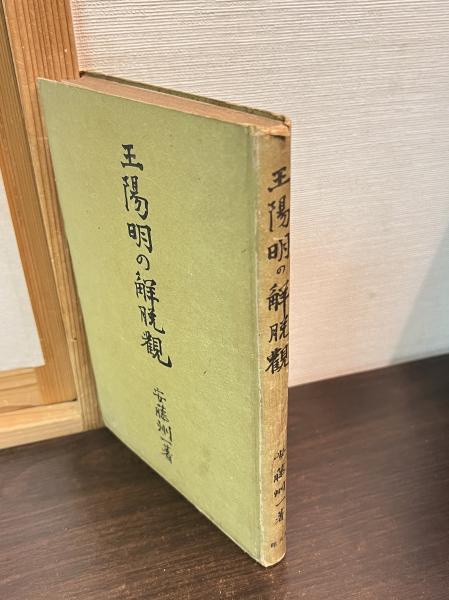 王陽明の解脱觀
安藤州一著
王陽明の解脱觀
安藤州一著